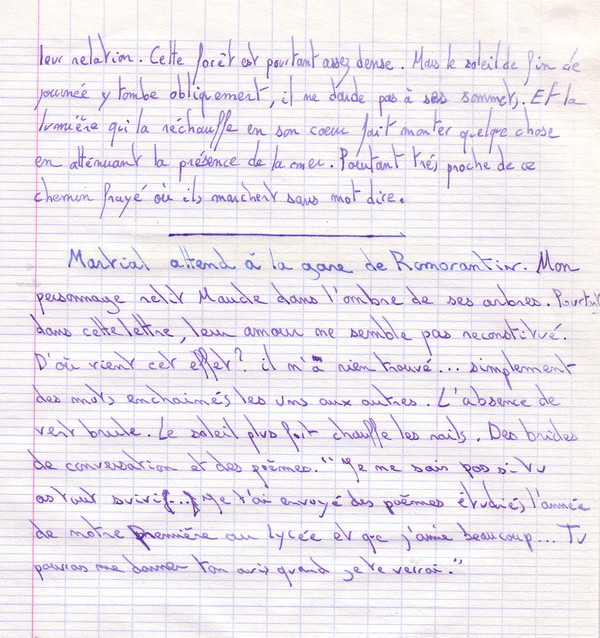 leur relation. Cette forêt est pourtant assez dense. Mais le soleil de fin de
journée y tombe obliquement, il ne darde pas à ses sommets. Et la
lumière qui la réchauffe en son coeur fait monter quelque chose
en atténuant la présence de la mer. Pourtant très proche de ce
chemin frayé où ils marchent sans mot dire.
Martial attend à la gare de Romorantin. Mon
personnage relit Maude dans l'ombre de ses arbres. Pourtant
dans cette lettre, leur amour me semble pas reconstitué.
D'où vient cet effet? il n'a rien trouvé... simplement
des mots enchaînés les uns aux autres. L'absence de
vent brule. Le soleil plus fort chauffe les rails. Des brides
de conversation et des poèmes. "Je ne sais pas si tu
as tout suivi [...] Je t'ai envoyé des poèmes étudiés l'année
de notre première au lycée et que j'aime beaucoup... Tu
pourras me donner ton avis quand je te verrai."